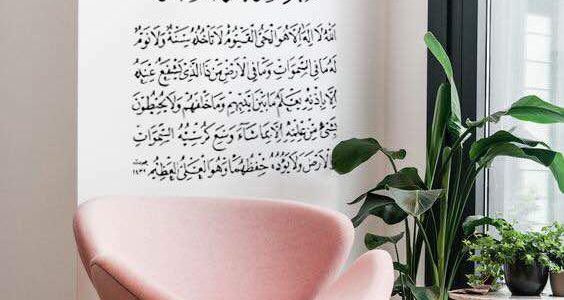 اللَّهُ لَا إِلَهَ إِلَّا هُوَ الْحَيُّ الْقَيُّومُ لَا تَأْخُذُهُ سِنَةٌ وَلَا نَوْمٌ
لَهُ مَا فِي السَّمَوَاتِ وَمَا فِي الْأَرْضِ مَنْ ذَا الَّذِي يَشْفَعُ عِنْدَهُ
إِلَّا بِإِذْنِهِ يَعْلَمُ مَا بَيْنَ أَيْدِيهِمْ وَمَا خَلْفَهُمْ وَلَا يُحِيطُونَ
بِشَيْءٍ مِنْ عِلْمِهِ إِلَّا بِمَا شَاءَ وَسِعَ كُرْسِيُّهُ السَّمَوَاتِ
وَالْأَرْضَ وَلَا يَئُودُهُ حِفْظُهُمَا وَهُوَ الْعَلِيُّ الْعَظِيمُ